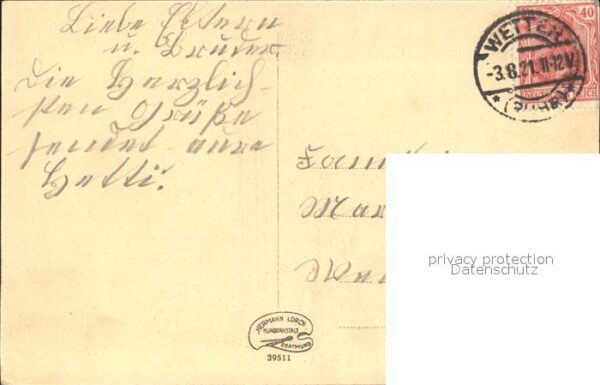 Liebe Eltern
u. Bruder.
Die Herzlich-
sten Grüße
sendet eure
Hetti.
40
WETTER
-3.8.21.11-12V.
* (Ruhr) *
Fam
Mar
privacy protection
Datenschutz
HERMANN LORCH
KUNSTANSTALT
DORTMUND
39511